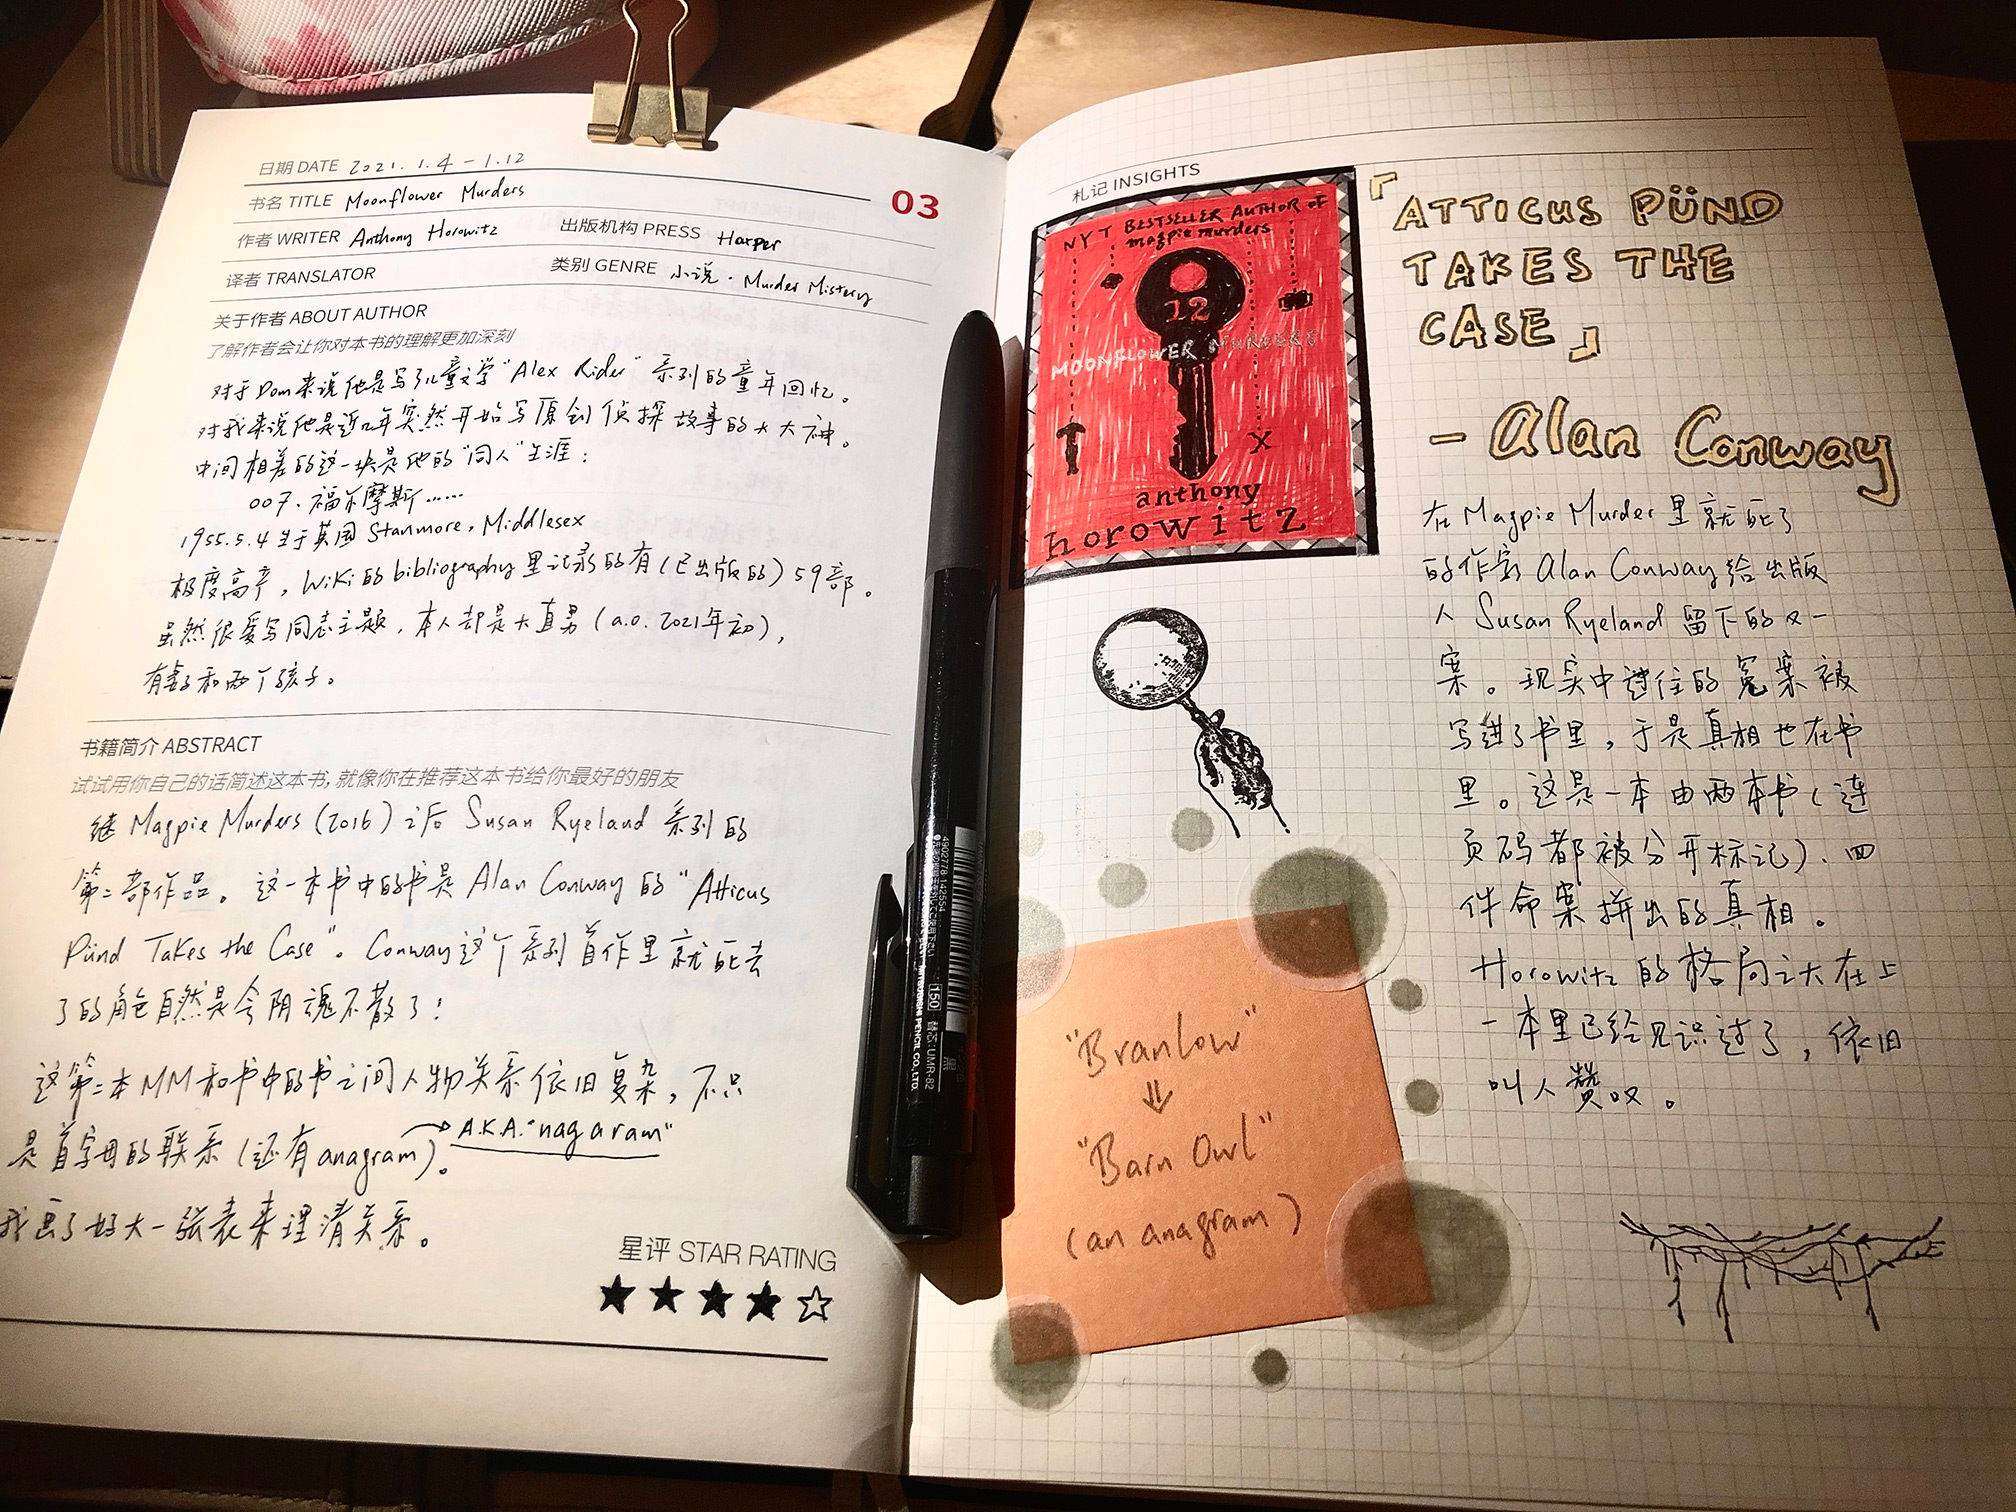 日期 DATE 2021.1.4-1.12
03
书名 TITLE Moonflower Murders
作者 WRITER Anthony Horowitz 出版机构 PRESS Harper
译者 TRANSLATOR 类别 GENRE 小说·Murder Mistery
关于作者 ABOUT AUTHOR
了解作者会让你对本书的理解更加深刻
对于Dom来说他是写儿童文学"Alex Rider"系列的童年回忆。
对我来说他是近几年突然开始写原创侦探故事的大大神。
中间相差的这一块是他的"同人"生涯：
007、福尔摩斯……
1955.5.4生于英国Stanmore, Middlesex
极度高产，Wiki的bibliography里记录的有(已出版的)59部。
虽然很爱写同志主题，本人却是大直男(a.o. 2021年初)，
有妻子和两个孩子。
书籍简介 ABSTRACT
试试用你自己的话简述这本书，就像你在推荐这本书给你最好的朋友
继Magpie Murders(2016)之后Susan Ryeland系列的
第二部作品。这一本书中的书是Alan Conway的"Atticus
Pünd Takes the Case"。Conway这个系列首作里就死去
了的角色自然是今阴魂不散了！
这第二本MM和书中的书之间人物关系依旧复杂，不只
是首字母的联系(还有anagram)。A.K.A. "nagaram"
我画了好大一张表来理清关系。
星评 STAR RATING
★★★★☆
4902778 142554
150 替芯:UMR-82
MITSUBISHI PENCIL CO., LTD.
札记 INSIGHTS
NYT BESTSELLER AUTHOR OF
magpie murders
12
MOONFLOWER MURDERS
X
anthony
horowitz
「ATTICUS PÜND
TAKES THE
CASE」
- Alan Conway
在Magpie Murder里就死了
的作家Alan Conway给出版
人Susan Ryeland留下的又一
案。现实中过往的冤案被
写进了书里，于是真相也在书
里。这是一本由两本书(连
页码都被分开标记)、四
件命案拼出的真相。
Horowitz的格局之大在上
一本里已给见识过了，依旧
叫人赞叹。
"Branlow"
⇓
"Barn Owl"
(an anagram)